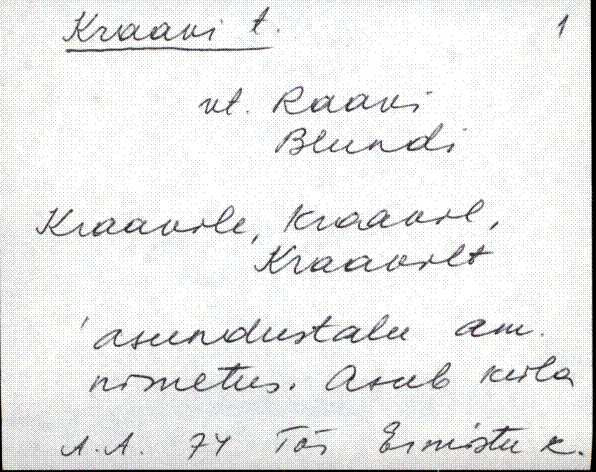 Kraavi t. 1
vt. Raavi
Blundi
Kraavile, Kraavil,
Kraavilt
'asundustalu am.
nimetus. Asub küla
A.A. 74 Tõs Ermistu k.